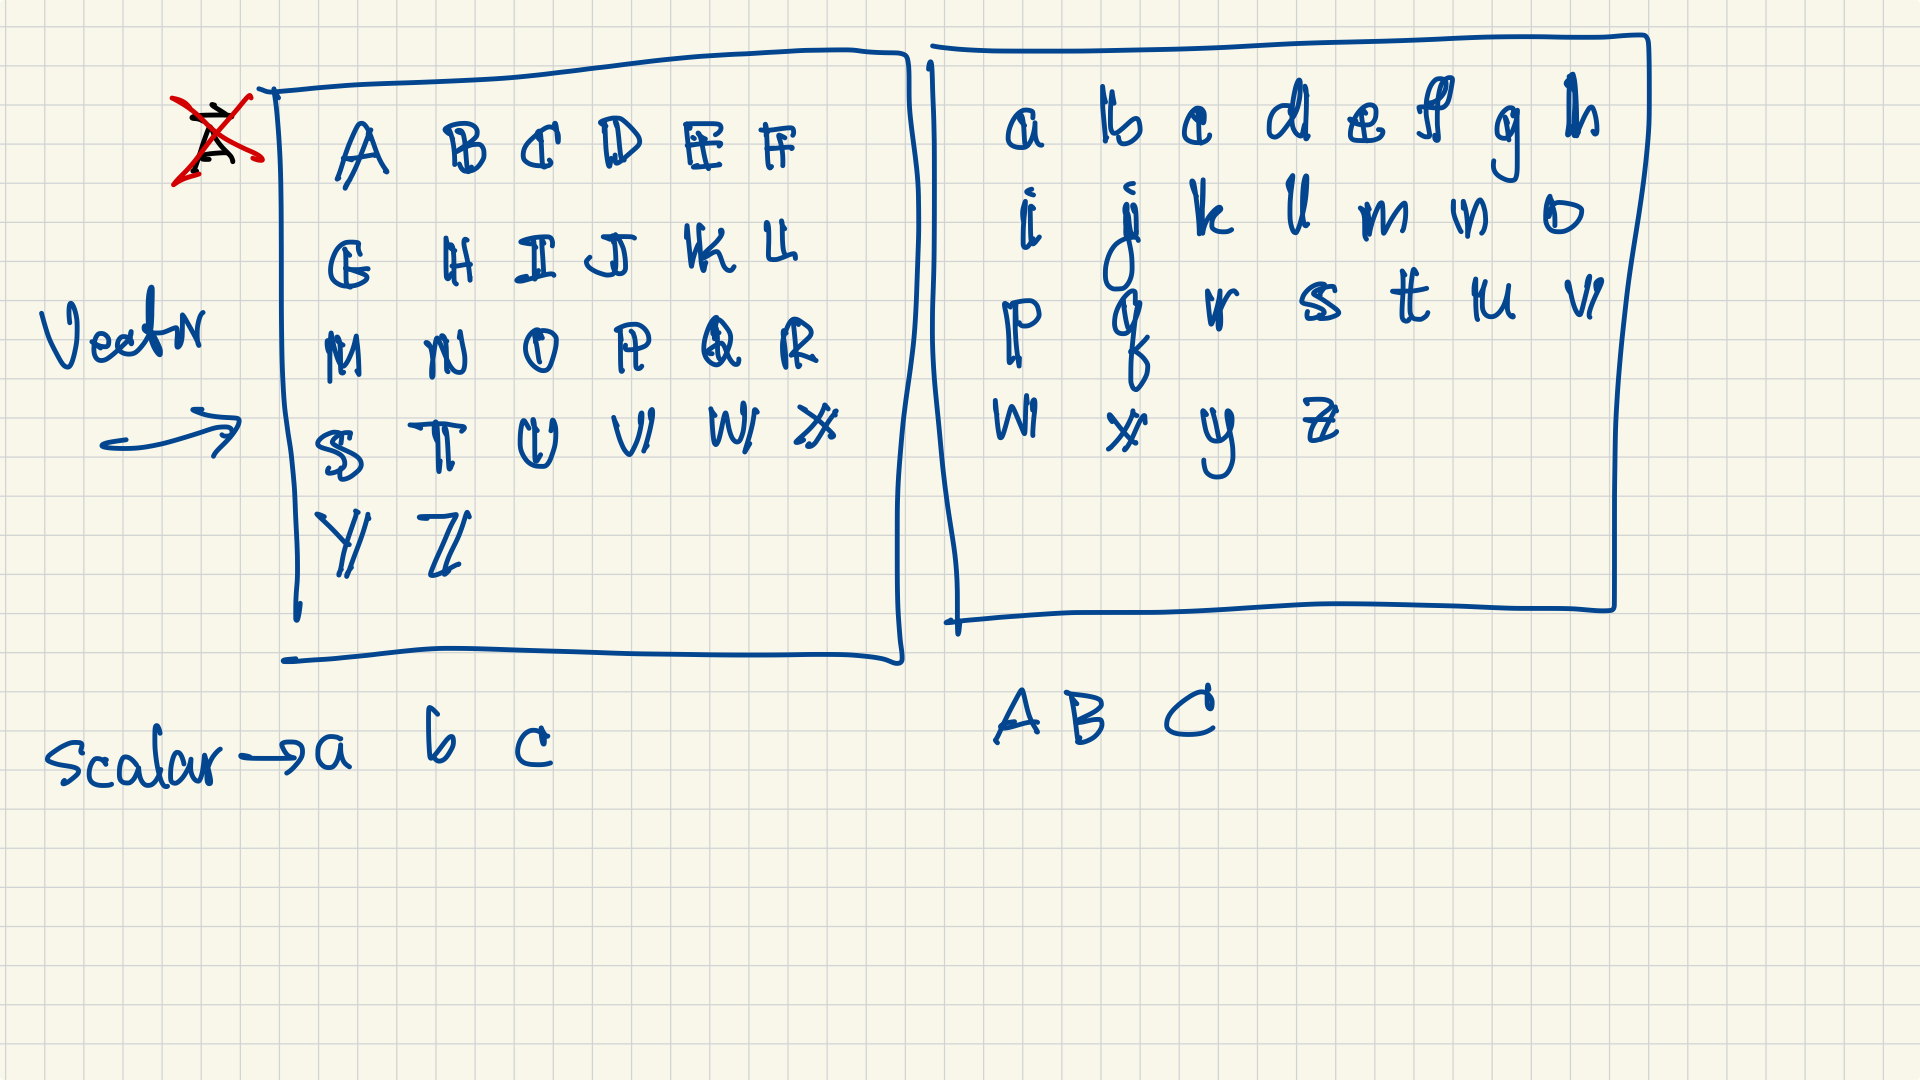 A B C D E F
G H I J K L
M N O P Q R
S T U V W X
Y Z
a b c d e f g h
i j k l m n o
p q r s t u v
w x y z
Vector →
scalar → a b c
A B C